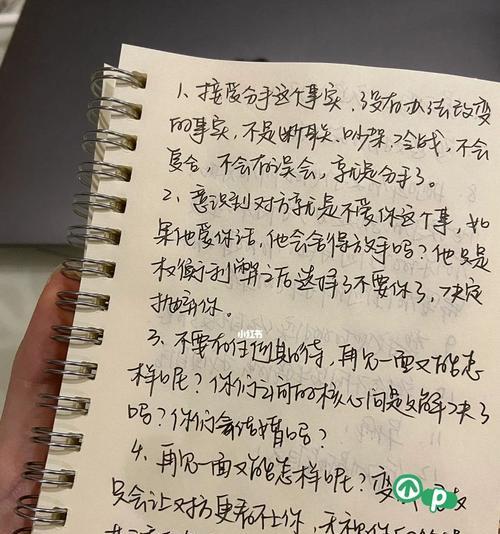 1、接受分手这个事实、没有办法改变
的事实，不是断联、吵架、冷战，不会
复合，不会有误会，就是分手了。
2、意识到对方就是不爱你这个事，如
果他爱你话，他会舍得放手吗？他只是
权衡利弊之后选择了不要你了，决定
抛弃你。
小红书
3、不要有任何期待，再见一面又能怎
样呢？你们之间的核心问题解决了
吗？你们会结婚吗？
4、再见一面又能怎样呢？变
只会让对方更看不上你，无视你
p